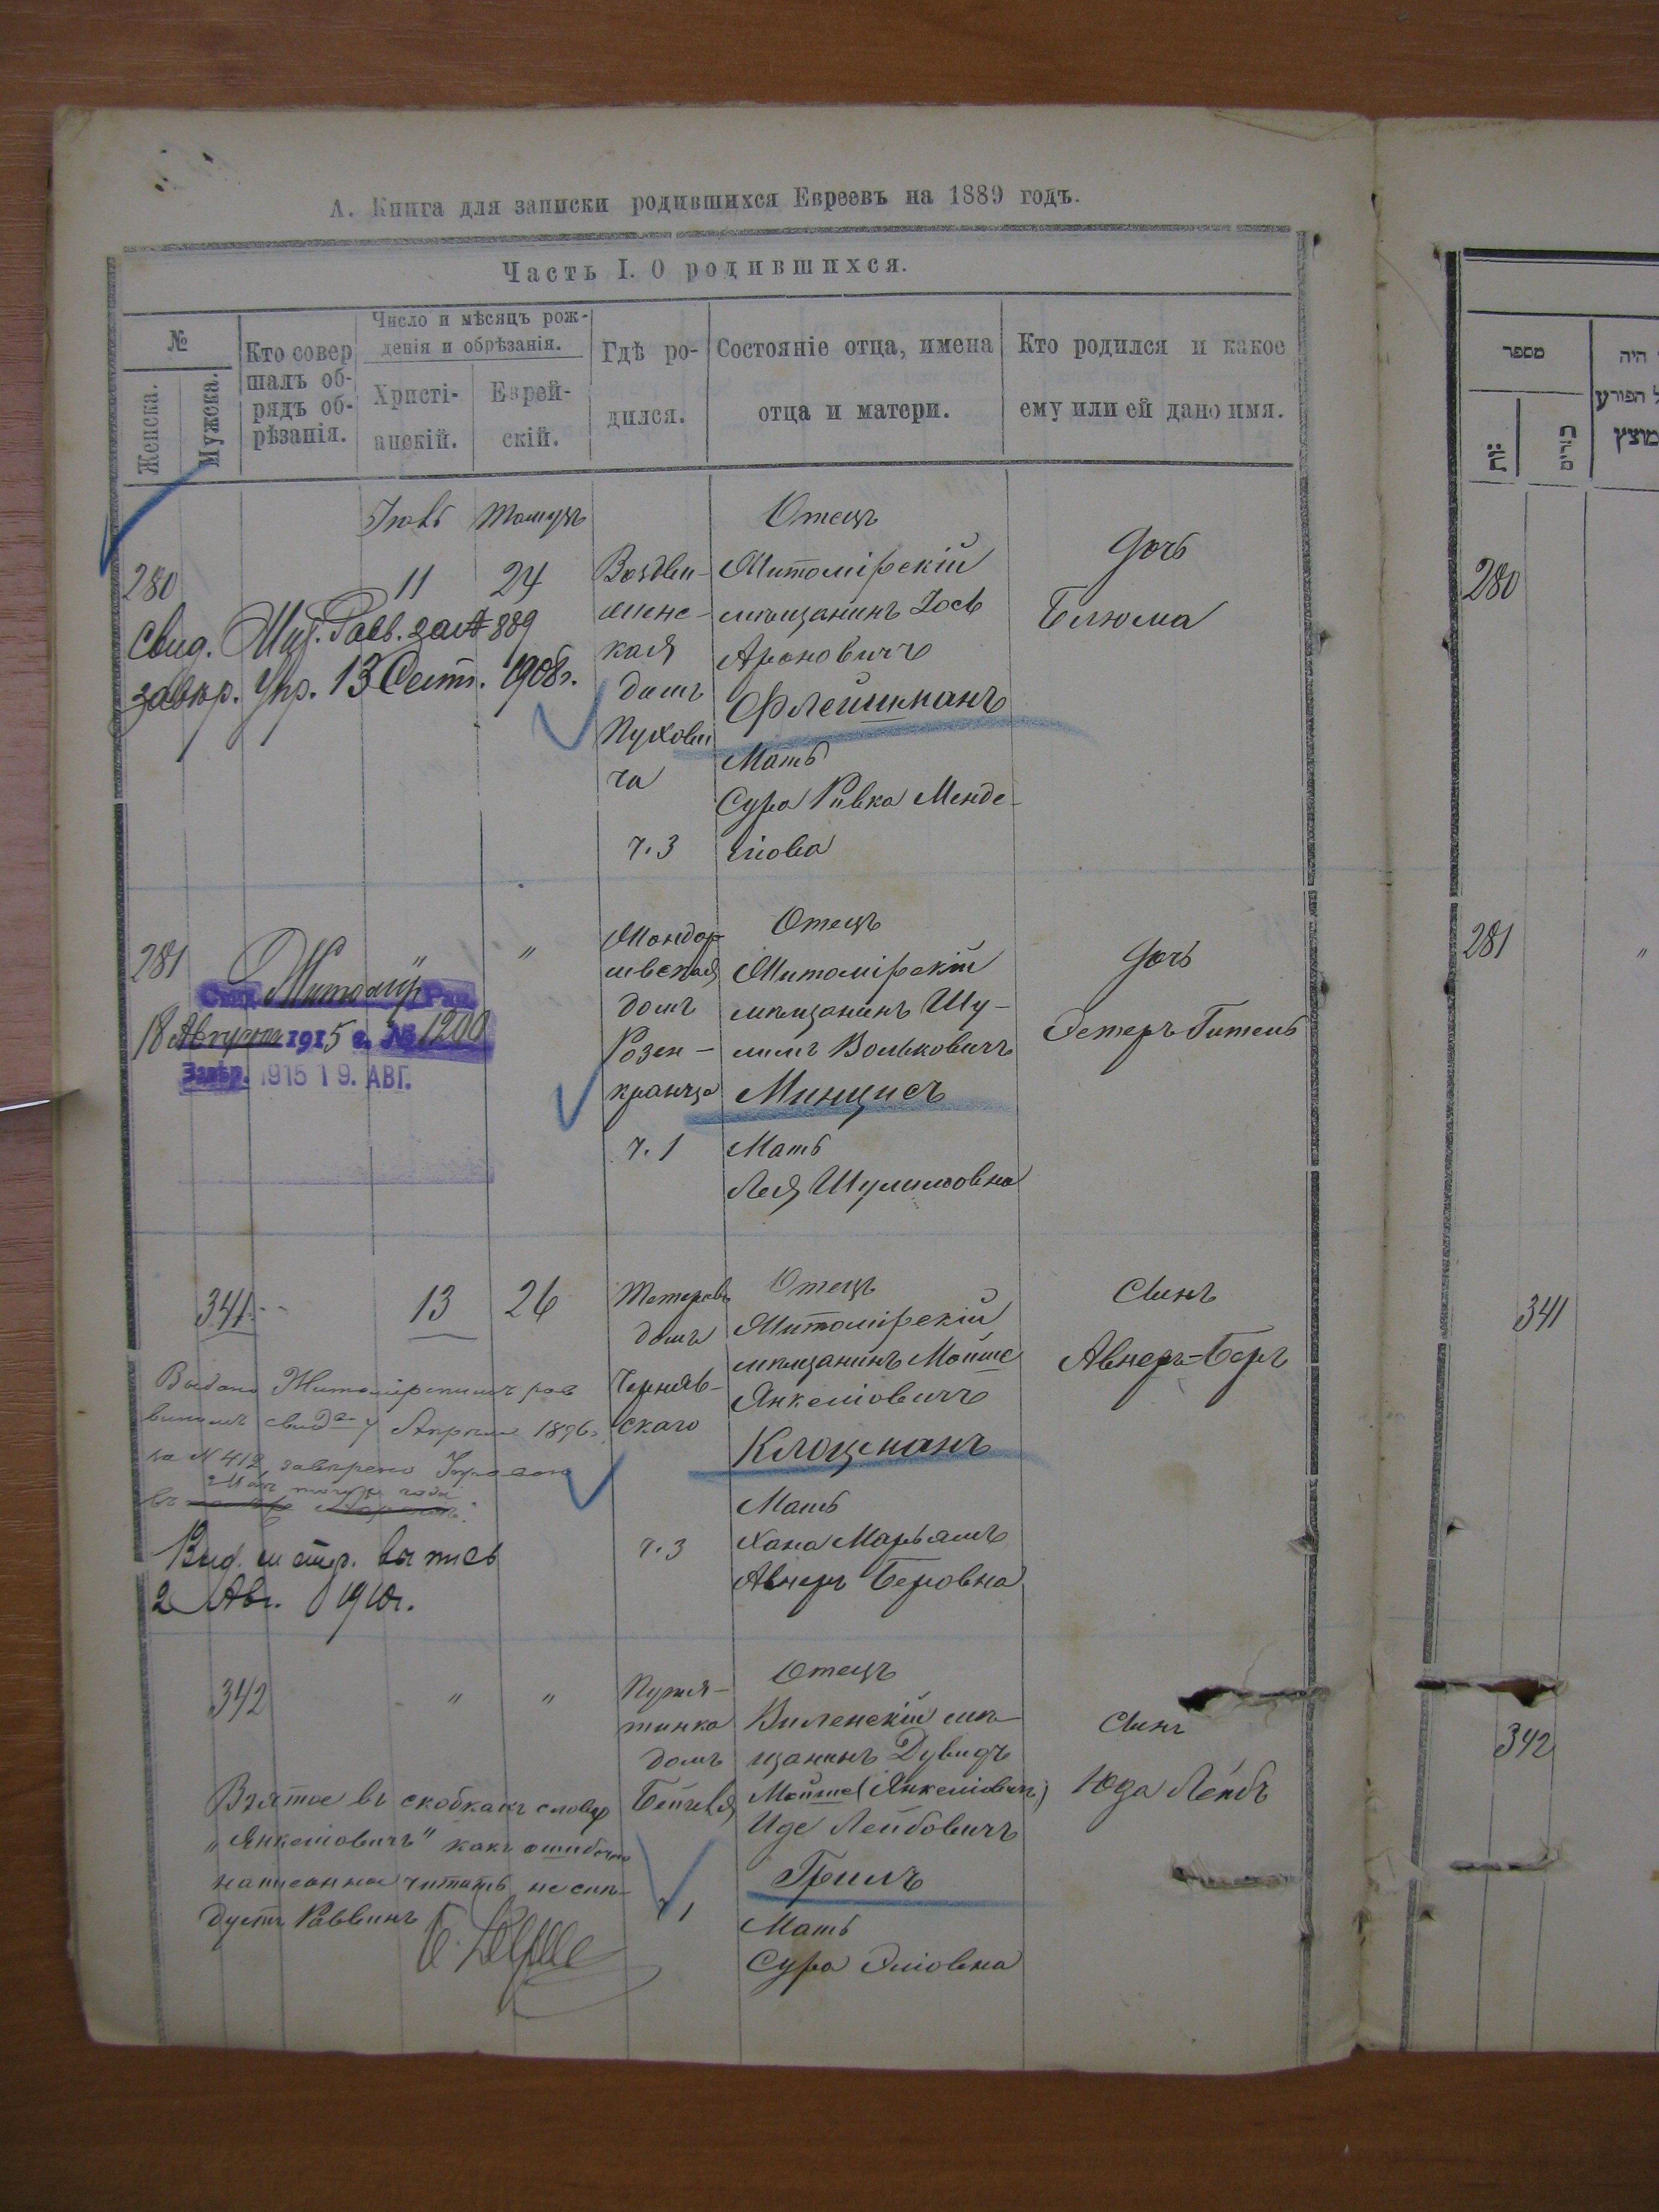 А. Книга для записки родившихся Евреевъ на 1889 годъ.
Часть I. О родившихся.
№
Женска.
Мужска.
Кто совер
шалъ об-
рядъ об-
рѣзанія.
Число и мѣсяцъ рож-
денія и обрѣзанія.
Христі-
анскій.
Еврей-
скій.
Гдѣ ро-
дился.
Состояніе отца, имена
отца и матери.
Кто родился и какое
ему или ей дано имя.
280
Свид. Жит. Равв. за № 889
завѣр. Упр. 13 Сент. 1908 г.
Іюль
11
Тамузъ
24
Воздви-
женс-
кая
домъ
ча
ч. 3
Отецъ
Житомірскій
мѣщанинъ Іось
Ароновичъ
Флейшманъ
Мать
Сура Ривка Менде-
ліовна
Дочь
Белюма
281
Свид. Житомір Рав.
18 Августа 1915 г. № 1200
Завѣр. 1915 19. АВГ.
"
"
домъ
Розен-
кранца
ч. 1
Отецъ
Житомірскій
мѣщанинъ Шу-
лимъ Вольковичъ
Минцисъ
Мать
Лея Шулимовна
Дочь
Эстеръ Гитель
341
13
26
Выдано Житомірскимъ рав
виномъ свид. 4 Апрѣля 1896 г.
за № 412, завѣрено
того же года
Выд. метр. выпись
2 Авг. 1910 г.
Тетеревъ
домъ
Черняв-
скаго
ч. 3
Отецъ
Житомірскій
мѣщанинъ Мойше
Янкеліовичъ
Клоцманъ
Мать
Хана Марьямъ
Авнеръ Беровна
Сынъ
Авнеръ-Беръ
342
"
"
Взятое въ скобкахъ слово
„Янкеліовичъ" какъ ошибочно
написанное читать не слѣ-
дуетъ Раввинъ
Путя-
тинка
домъ
ч. 1
Отецъ
Виленскій мѣ-
щанинъ Дувидъ
Мойше (Янкеліовичъ)
Иде Лейбовичъ
Гримъ
Мать
Сура Эліовна
Сынъ
Юда Лейбъ
מספר
היה
הפורע
מוצץ
280
281
"
341
342